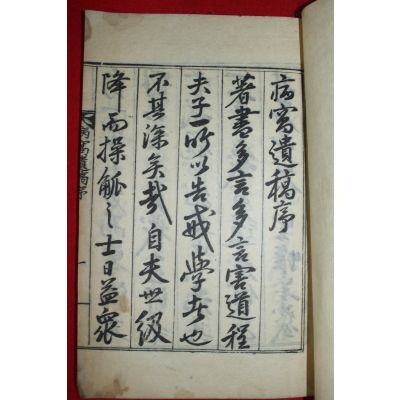 病窩遺稿序
著書多言多言害道程
夫子所以告戒學者也
不其深矣哉自夫世級
降而操觚之士日益衆
病窩遺稿序
一